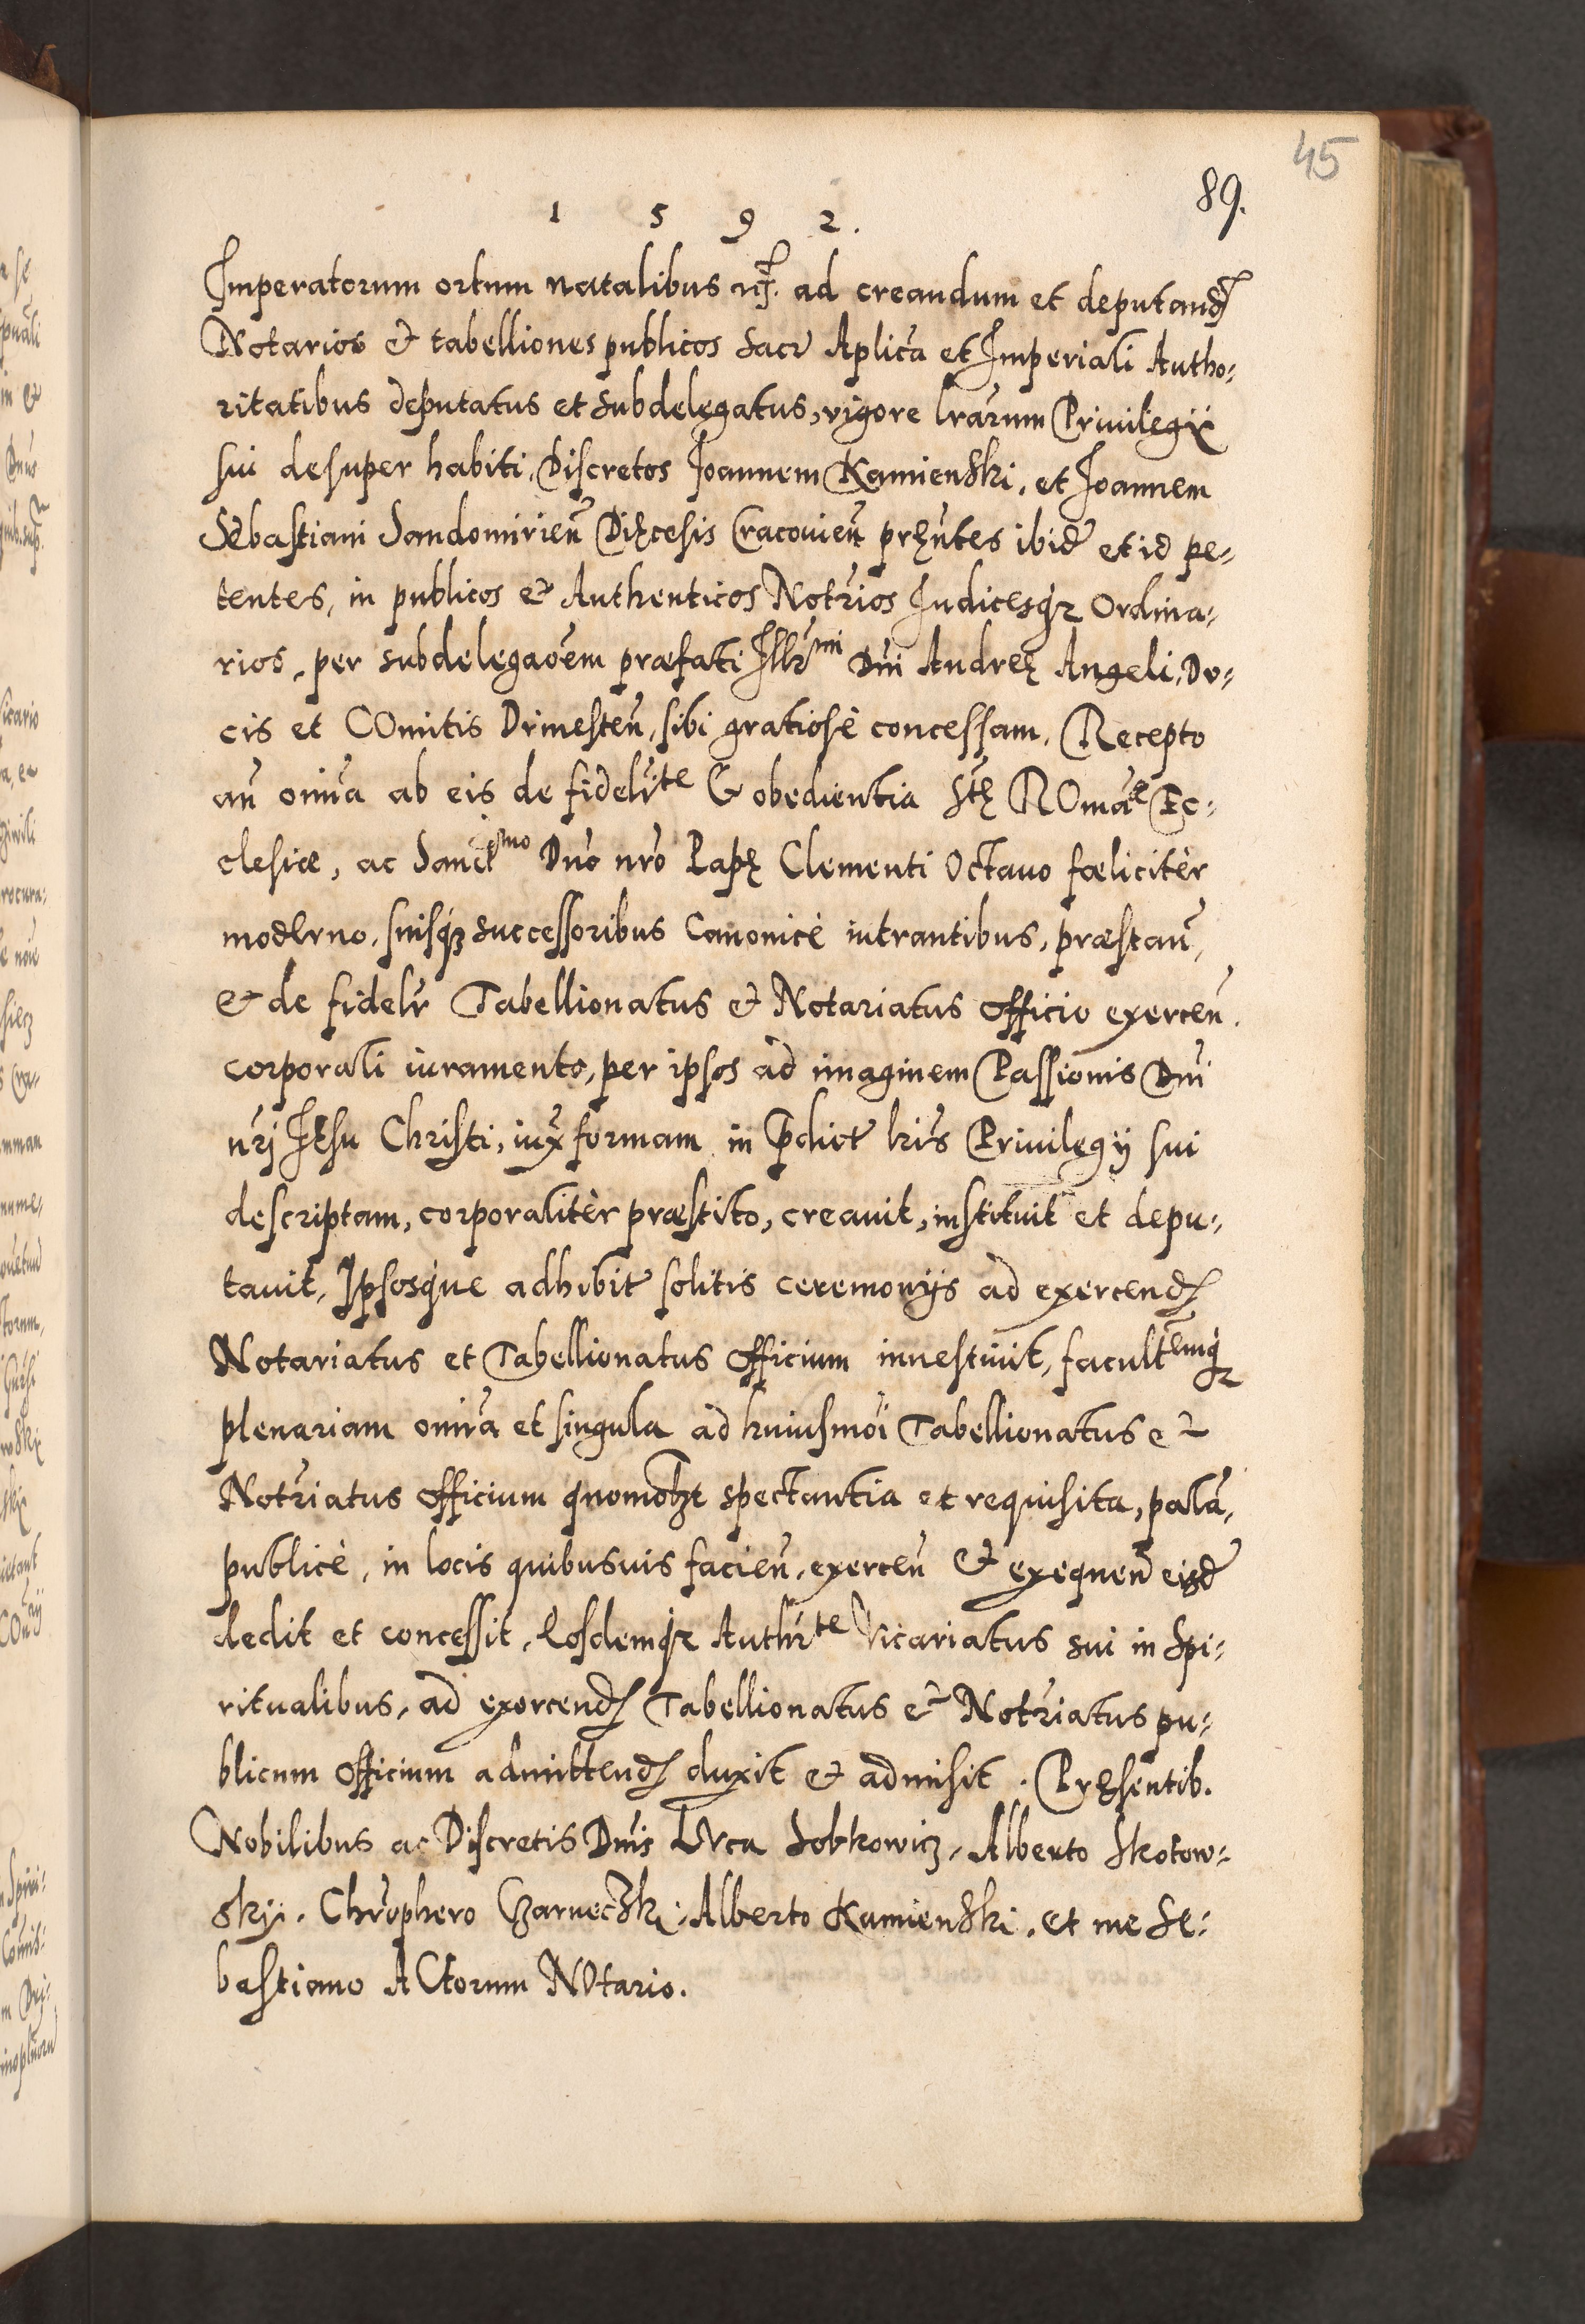 45
89.
1 5 9 2.
Imperatorum ortum natalibus ad creandum et deputand
Notarios & tabelliones publicos Sacr Aplica et Imperiali Autho:
ritatibus deputatus et Subdelegatus, vigore lrarum Priuilegij
sui desuper habiti, Discretos Joannem Kamienski, et Joannem
Sebastiani Sandomirien Dięcesis Cracouien pręntes ibid et id pe:
tentes, in publicos & Authenticos Notrios Iudicesq Ordina:
rios, per subdelegaoem præfati Illr̃mi Dni Andreę Angeli, Du:
cis et COmitis Drinesten, sibi gratiosè concessam, Recepto
an omia ab eis de fidelrte & obedientia Stę ROmae Ec:
clesiæ, ac Sanctmo Dno nro Papę Clementi Octauo fœlicitèr
moderno, suisq successoribus Canonicè intrantibus, præstan,
& de fidelr Tabellionatus & Notariatus officio exercen.
corporali iuramento, per ipsos ad imaginem Passionis Dni
nrj Iesu Christi, iux formam in pdict lris Priuilegij sui
descriptam, corporalitèr præstito, creauit, instituit et depu:
tauit, Ipsosque adhibit solitis ceremonijs ad exercend
Notariatus et Tabellionatus officium inuestiuit, facultemq
plenariam omia et singula ad huiusmoi Tabellionatus et
Notriatus officium quomolzt spectantia et requisita, palã,
publicè, in locis quibusuis facien, exercen & exequen eisd
dedit et concessit, Eosdemq Authrte Vicariatus sui in Spi:
ritualibus, ad exercend Tabellionatus et Notriatus pu:
blicum officium admittend duxit & admisit. Pręsentib.
Nobilibus ac Discretis Dnis LVca Sobkowicz, Alberto Skotow:
skij, Chrophero Czarneczki, Alberto Kamienski, et me Se:
bastiano ACtorum NOtario.